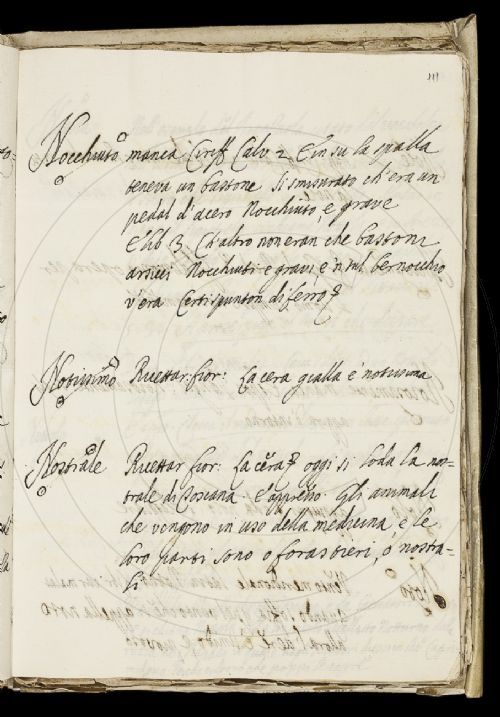 111
Nocchiuto manca Ciriff Calv. 2 E in su la spalla
teneva un bastone si smisurato ch'era un
pedal d'acero Nocchiuto, e grave
E lib 3. Ch'altro non eran che bastoni
arsicci Nocchiuti e gravi, e 'n sul bernocchio
v'era Certi spunton di ferro
Notissimo Ricettar: fior: La cera gialla è notissima
Nostrale Ricettar fior: La cera oggi si loda la nos-
trale di Toscana. E appresso. Gli animali
che vengono in uso della medicina, e le
loro parti sono o forastieri, ò nostra-
li